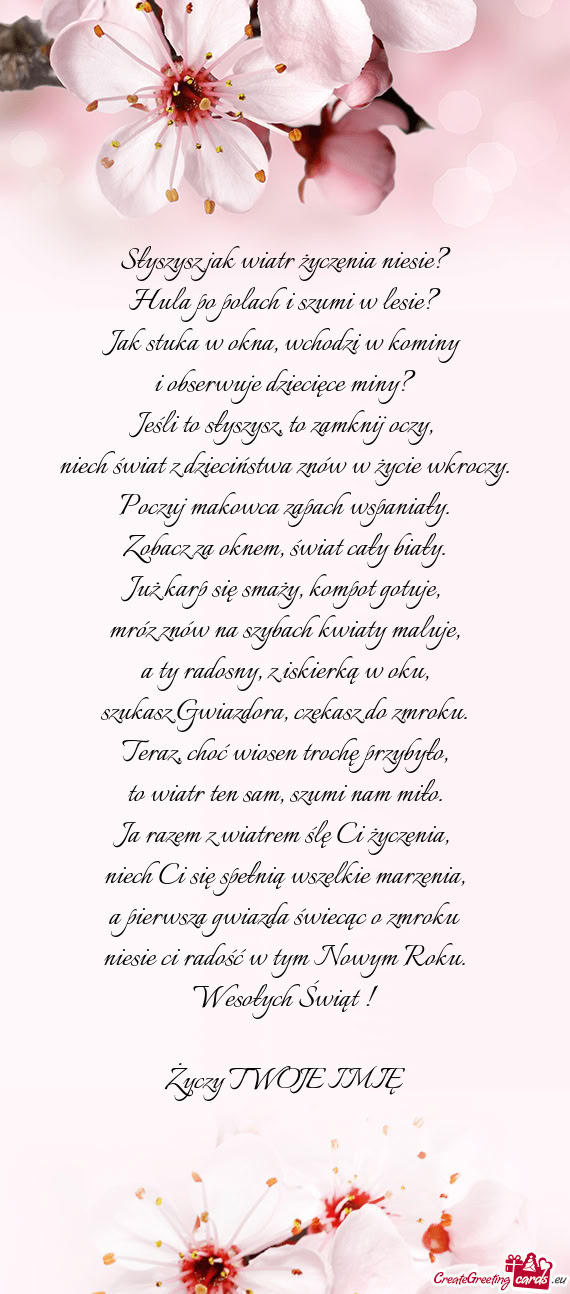 Słyszysz jak wiatr życzenia niesie?
Hula po polach i szumi w lesie?
Jak stuka w okna, wchodzi w kominy
i obserwuje dziecięce miny?
Jeśli to słyszysz, to zamknij oczy,
niech świat z dzieciństwa znów w życie wkroczy.
Poczuj makowca zapach wspaniały.
Zobacz za oknem, świat cały biały.
Już karp się smaży, kompot gotuje,
mróz znów na szybach kwiaty maluje,
a ty radosny, z iskierką w oku,
szukasz Gwiazdora, czekasz do zmroku.
Teraz, choć wiosen trochę przybyło,
to wiatr ten sam, szumi nam miło.
Ja razem z wiatrem ślę Ci życzenia,
niech Ci się spełnią wszelkie marzenia,
a pierwsza gwiazda świecąc o zmroku
niesie ci radość w tym Nowym Roku.
Wesołych Świąt !
Życzy TWOJE IMIĘ
CreateGreetingcards.eu